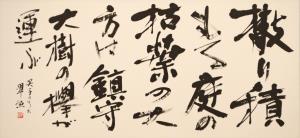 散り積
もる庭の
枯葉の大
方は鎮守
大樹の欅が
運ぶ